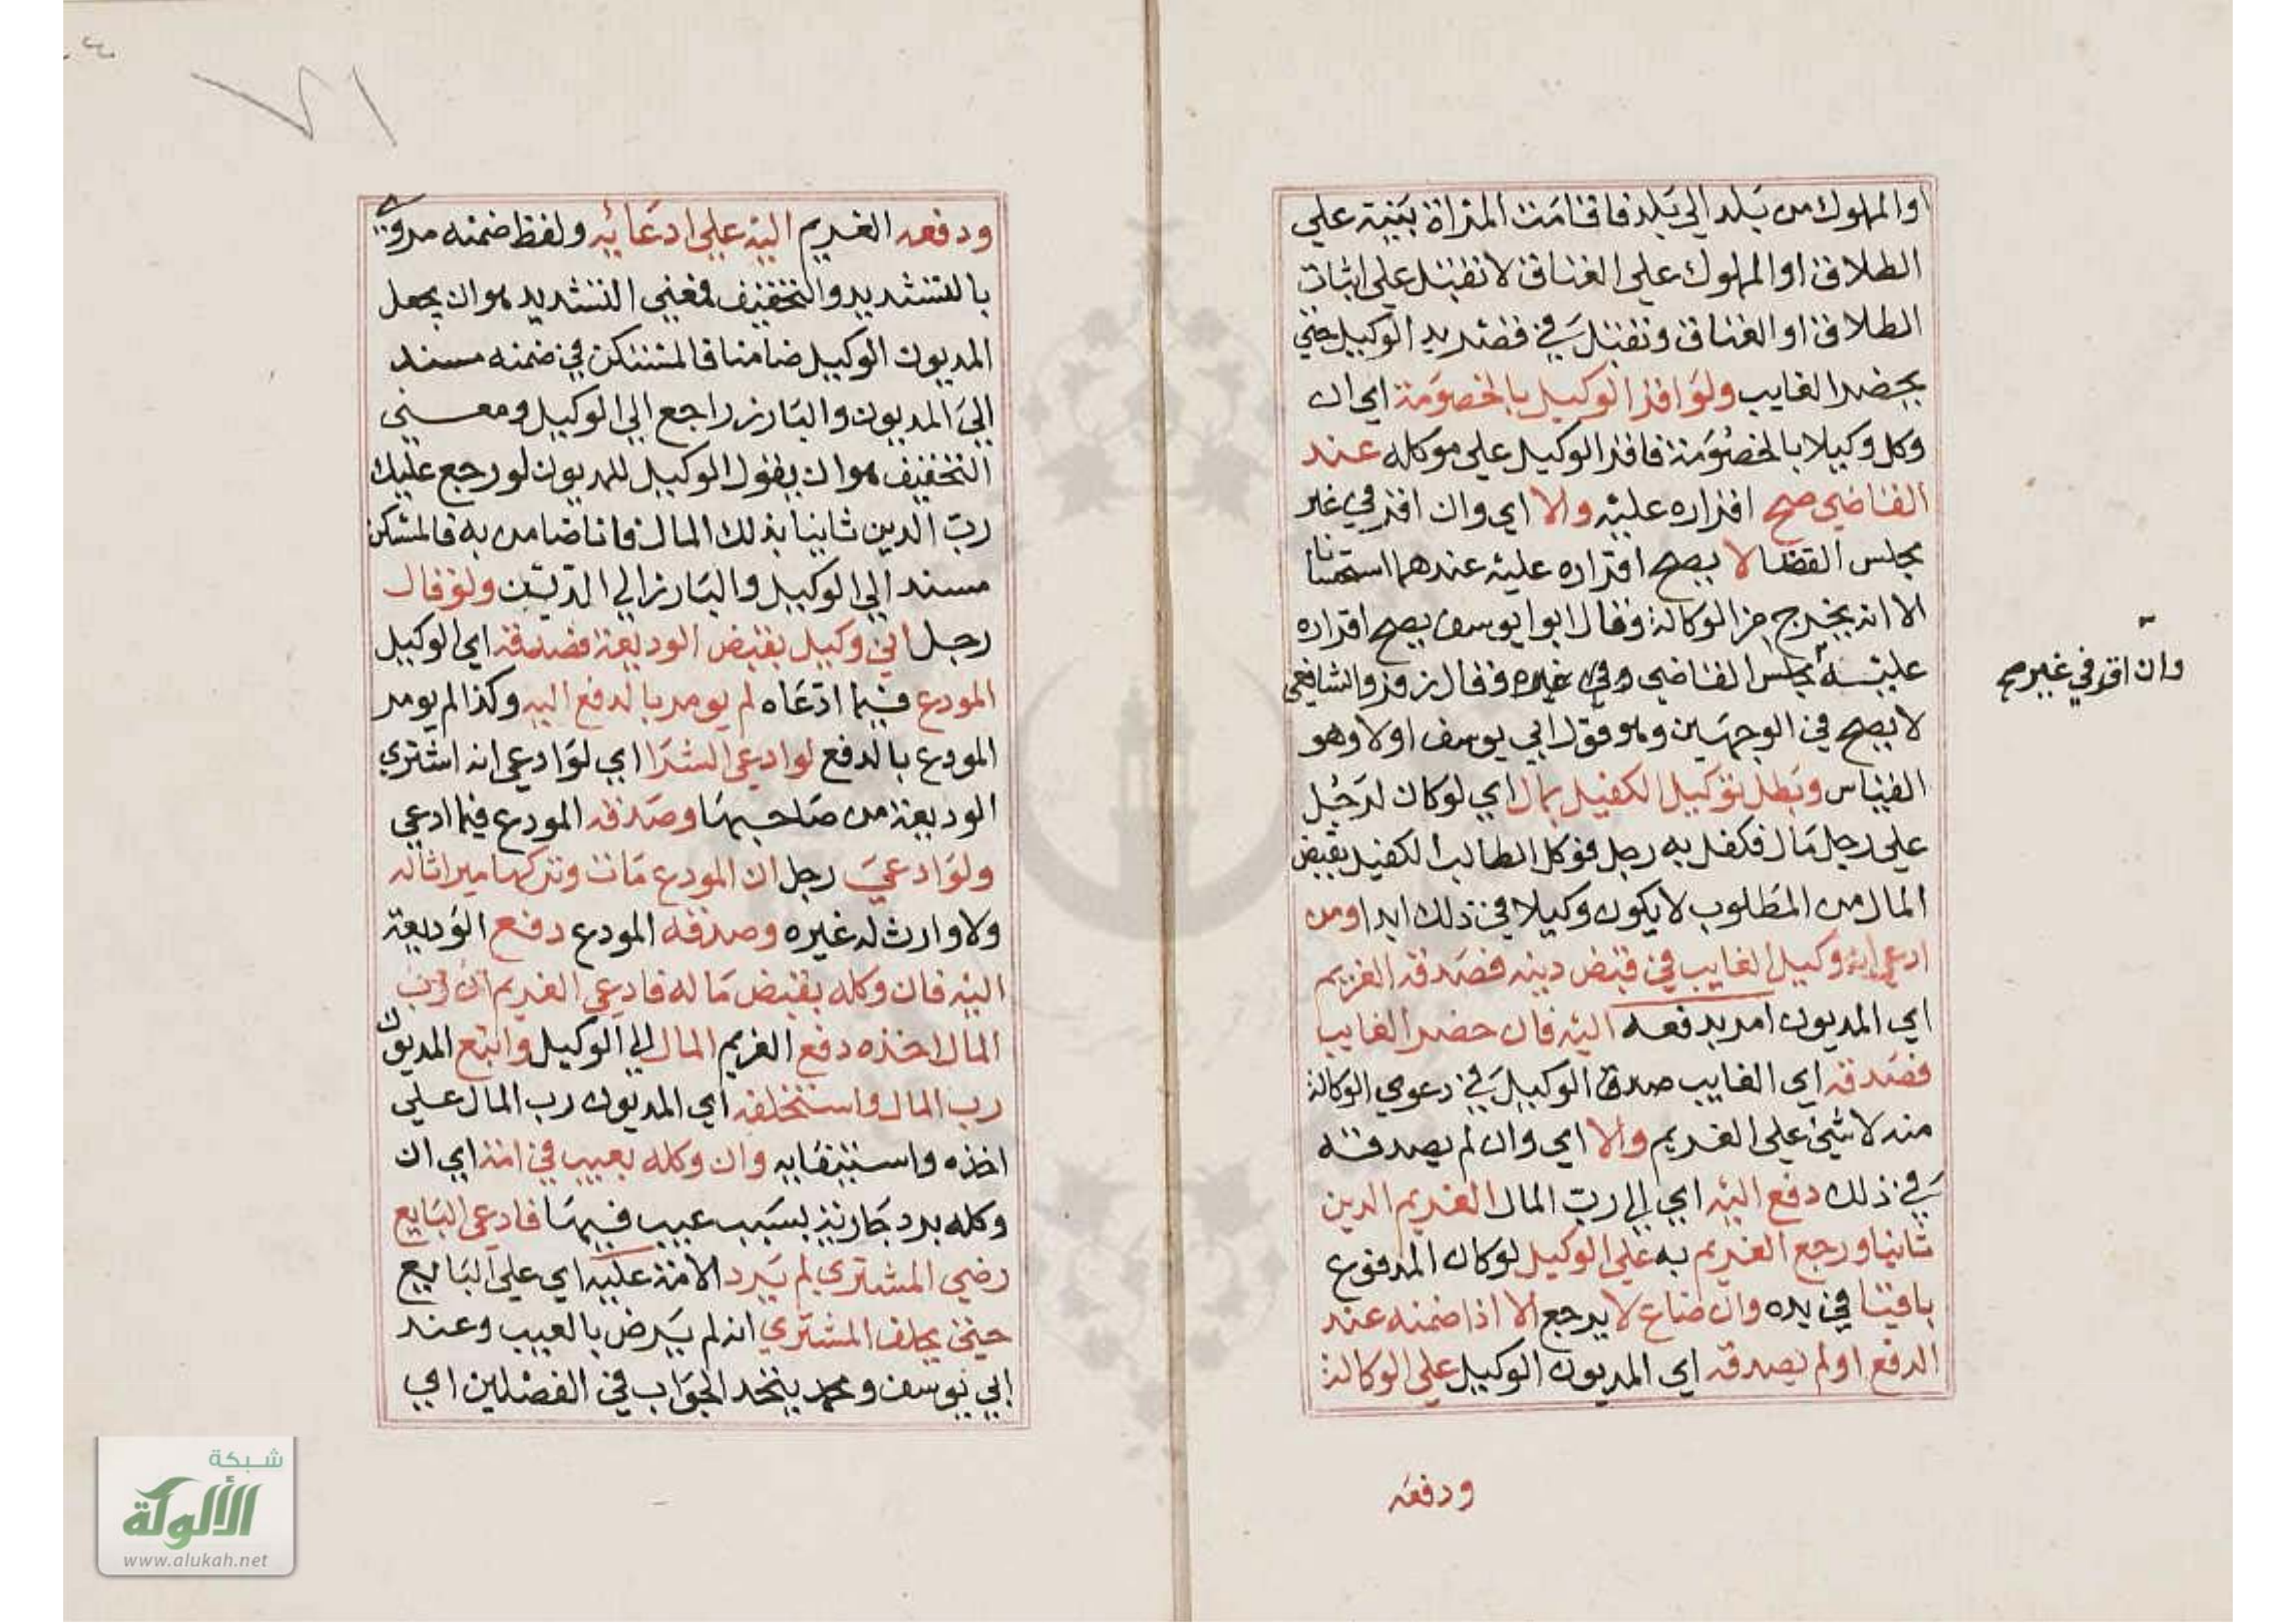 او المملوك من بلد الي بلد فاقامت المراة بينة علي
الطلاق او المملوك علي العتاق لا تقبل علي اثبات
الطلاق او العتاق وتقبل في قصر يد الوكيل حتي
يحضر الغايب ولو اقر الوكيل بالخصومة اي ان
وكل وكيلا بالخصومة فاقر الوكيل علي موكله عند
القاضي صح اقراره عليه والا اي وان اقر في غير
مجلس القضا لا يصح اقراره عليه عندهما استحسانا
الا انه يخرج من الوكالة وقال ابوا يوسف يصح اقراره
عليه مجلس القاضي وفي غيره وقال زفر والشافعي
وان اقر في غيره صح
لا يصح في الوجهين وهو قول ابي يوسف اولا وهو
القياس وبطل توكيل الكفيل بمال اي لو كان لرجل
علي رجل مال فكفل به رجل فوكل الطالب الكفيل بقبض
المال من المطلوب لا يكون وكيلا في ذلك ابدا ومن
ادعي انه وكيل الغايب في قبض دينه فصدقه الغريم
اي المديون امر بدفعه اليه فان حضر الغايب
فصدقه اي الغايب صدق الوكيل في دعوي الوكالة
منه لا شي علي الغريم والا اي وان لم يصدقه
في ذلك دفع اليه اي الي رب المال الغريم الدين
ثانيا ورجع الغريم به علي الوكيل لو كان المدفوع
باقيا في يده وان ضاع لا يرجع الا اذا ضمنه عند
الدفع او لم يصدقه اي المديون الوكيل علي الوكالة
ودفعه
ودفعه الغريم اليه علي ادعائه ولفظ ضمنه مروي
بالتشديد والتخفيف فمعني التشديد هو ان يجعل
المديون الوكيل ضامنا فالمستكن في ضمنه مسند
الي المديون والبارز راجع الي الوكيل ومعني
التخفيف هو ان يقول الوكيل للمديون لو رجع عليك
رب الدين ثانيا بذلك المال فانا ضامن به فالمستكن
مسند الي الوكيل والبارز الي الدين ولو قال
رجل اني وكيل بقبض الوديعة فصدقه اي الوكيل
المودع فيما ادعاه لم يومر بالدفع اليه وكذا لم يومر
المودع بالدفع لو ادعي الشرا اي لو ادعي انه اشتري
الوديعة من صاحبها وصدقه المودع فيما ادعي
ولو ادعي رجل ان المودع مات وتركها ميراثا له
ولا وارث له غيره وصدقه المودع دفع الوديعة
اليه فان وكله بقبض ماله فادعي الغريم ان رب
المال اخذه دفع الغريم المال الي الوكيل واتبع المديون
رب المال واستحلفه اي المديون رب المال علي
اخذه واستيفايه وان وكله بعيب في امة اي ان
وكله برد جارية بسبب عيب فيها فادعي البايع
رضي المشتري لم يرد الامة عليه اي علي البايع
حتي يحلف المشتري انه لم يرض بالعيب وعند
ابي يوسف ومحمد يتحد الجواب في الفصلين اي
٧١
شبكة
الألوكة
www.alukah.net